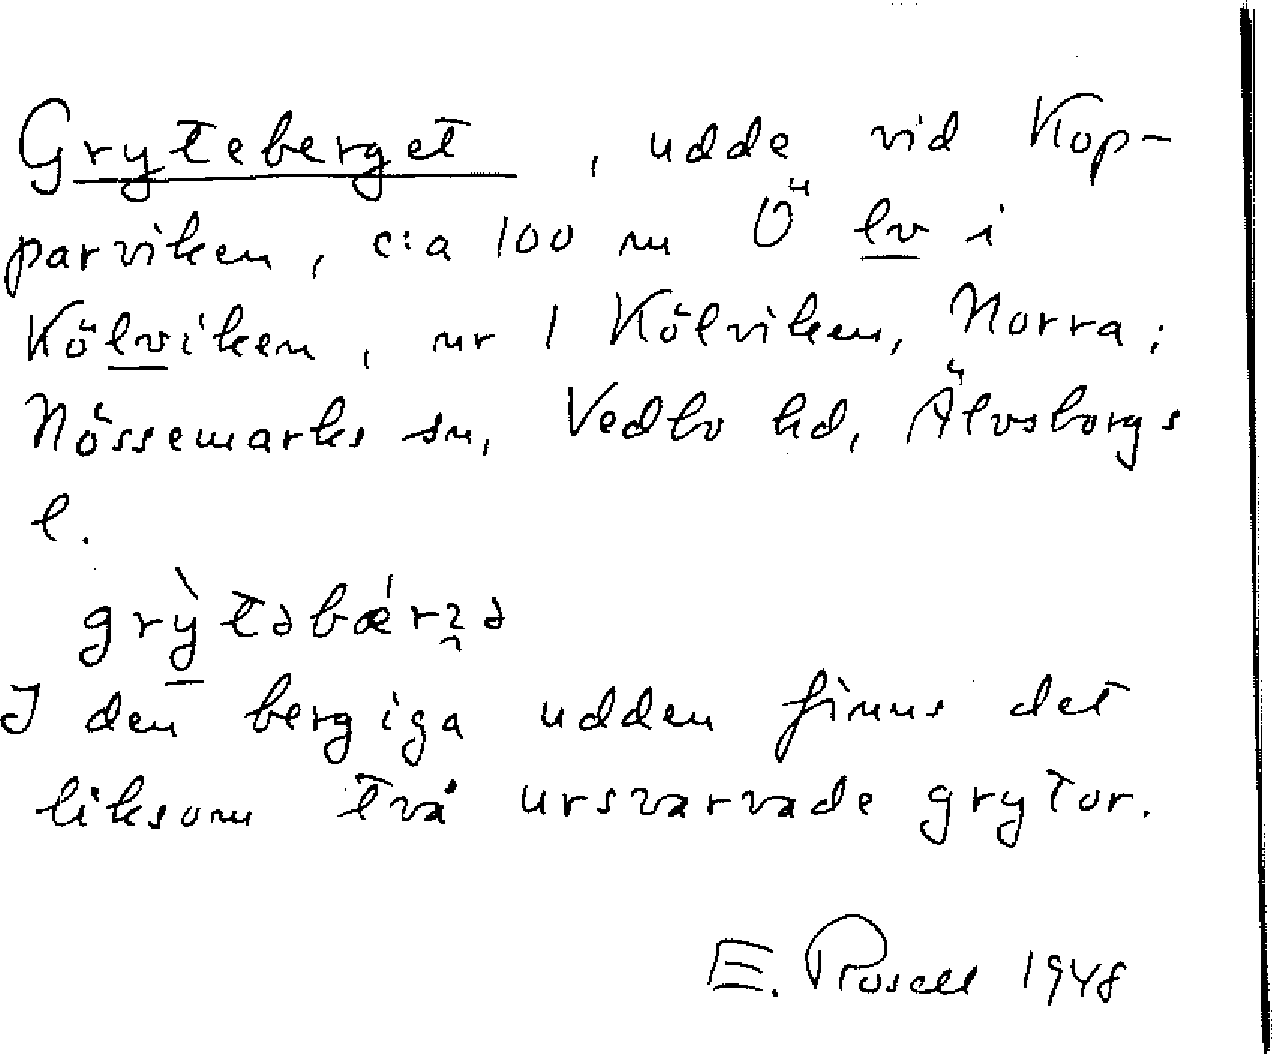 Gryteberget, udde vid Kop-
parviken, c:a 100 m Ö lv i
Kölviken, nr 1 Kölviken, Norra;
Nössemarks sn, Vedbo hd, Älvsborgs
l.
grỳtəbǽrʒə
I den bergiga udden finns det
liksom två ursvarvade grytor.
E. Rosell 1948